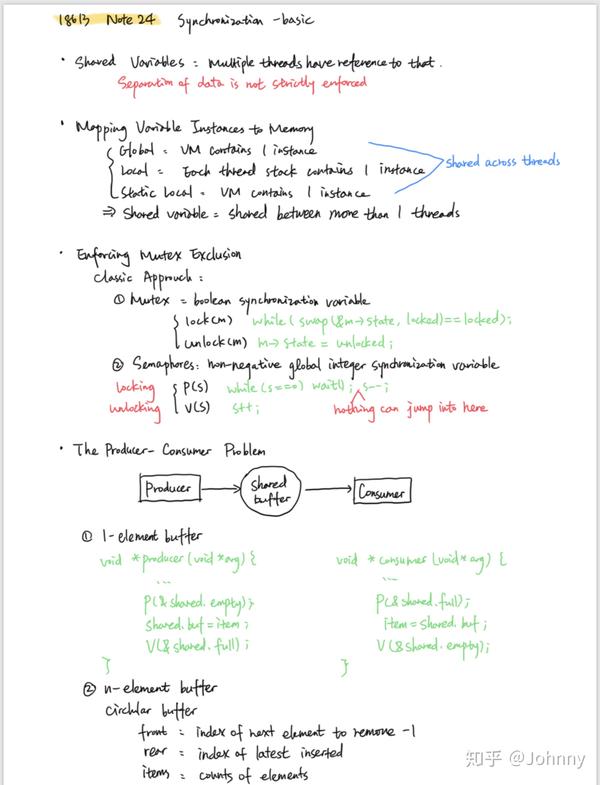 18613 Note 24 Synchronization - basic
• Shared Variables = Multiple threads have reference to that.
Separation of data is not strictly enforced
• Mapping Variable Instances to Memory
Global = VM contains 1 instance
Local = Each thread stack contains 1 instance
Static Local = VM contains 1 instance
shared across threads
⇒ Shared variable = shared between more than 1 threads
• Enforcing Mutex Exclusion
Classic Approach =
① Mutex = boolean synchronization variable
lock(m) while(swap(&m→state, locked)==locked);
unlock(m) m→state = unlocked;
② Semaphores: non-negative global integer synchronization variable
locking P(s) while(s==0) wait(); s--;
unlocking V(s) s++; nothing can jump into here
• The Producer-Consumer Problem
Producer
Shared
buffer
Consumer
① 1-element buffer
void *producer(void*arg) {
...
P(&shared.empty);
shared.buf=item;
V(&shared.full);
}
void *consumer(void*arg) {
...
P(&shared.full);
item=shared.buf;
V(&shared.empty);
}
② n-element buffer
Circular buffer
front = index of next element to remove -1
rear = index of latest inserted
items = counts of elements
知乎 @Johnny